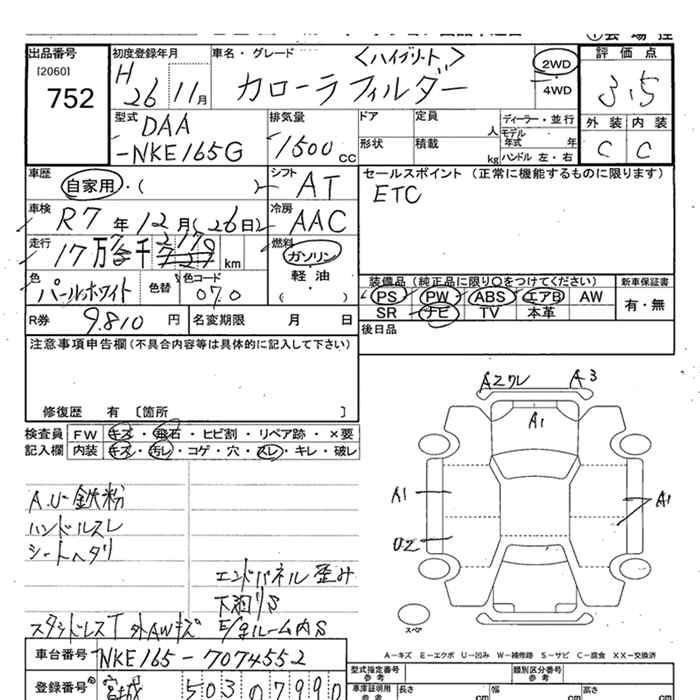 出品番号
[2060]
752
初度登録年月
H 26 11月
車名・グレード
〈ハイブリット〉
カローラフィルダー
2WD
4WD
評価点
3.5
外装 内装
C C
型式 DAA
-NKE165G
排気量
1500 cc
ドア
定員 人
形状
積載 kg
ディーラー・並行
モデル年式 年
ハンドル 左・右
車歴 自家用・( )
シフト AT
セールスポイント (正常に機能するものに限ります)
ETC
車検 R7年12月(26日)
冷房 AAC
走行 17万 千 km
燃料 ガソリン
軽・油
( )
色 パールホワイト
色替
色コード 070
装備品 (純正品に限り○をつけてください)
PS PW ABS エアB AW
SR ナビ TV 本革
新車保証書
有・無
R券 9,810 円
名変期限 月 日
後日品
注意事項申告欄(不具合内容等は具体的に記入して下さい)
修復歴 有 [箇所 ]
検査員 FW キズ・飛石・ヒビ割・リペア跡・×要
記入欄 内装 キズ・汚レ・コゲ・穴・スレ・キレ・破レ
A2ワレ A3
A1
A1
A1
U2
A.U-鉄粉
ハンドルスレ
シートヘタリ
エンドパネル歪み
下廻りS
スタッドレスT 外AWキズ E/gルーム内S
スペア
A－キズ E－エクボ U－凹み W－補修跡 S－サビ C－腐食 XX－交換済
車台番号 NKE165-7074552
登録番号 宮城 503 の 7990
型式指定番号
参考
類別区分番号
参考
車庫証明用
参考
長さ cm
幅 cm
高さ cm